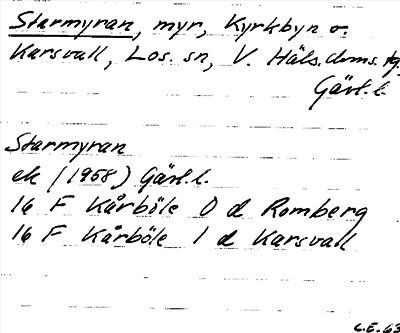 Starmyran, myr, Kyrkbyn o.
Karsvall, Los. sn, V. Häls. dms. tg.
Gävl. l.
Starmyran
ek (1958) Gävl. l.
16 F Kårböle 0 d Romberg
16 F Kårböle 1 d Karsvall
C.E. 63